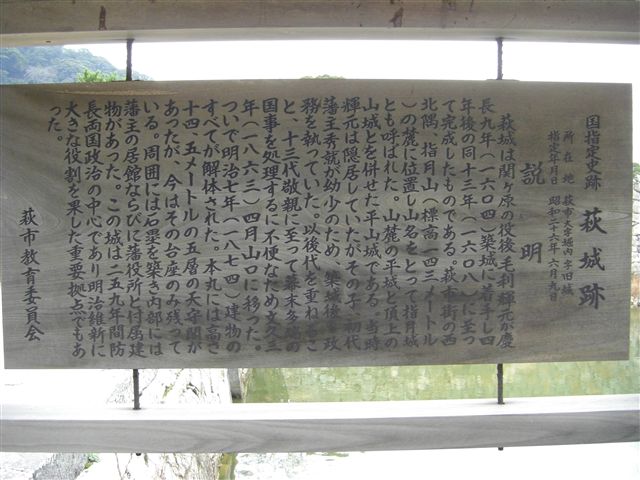 国指定史跡 萩城跡
所在地 萩市大字堀内字旧城
指定年月日 昭和二十六年六月九日
説明
萩城は関ヶ原の役後毛利輝元が慶
長九年（一六〇四）築城に着手し四
年後の同十三年（一六〇八）に至っ
て完成したものである。萩市街の西
北隅、指月山（標高一四三メートル
）の麓に位置し山名をとって指月城
とも呼ばれた。山麓の平城と頂上の
山城とを併せた平山城である。当時
輝元は隠居していたがその子、初代
藩主秀就が幼少のため、築城後も政
務を執っていた。以後代を重ねるこ
と、十三代敬親に至って幕末多端の
国事を処理するに不便なため文久三
年（一八六三）四月山口に移った。
ついで明治七年（一八七四）建物の
すべてが解体された。本丸には高さ
十四、五メートルの五層の天守閣が
あったが、今はその台座のみ残って
いる。周囲には石塁を築き内部には
藩主の居館ならびに藩役所と付属建
物があった。この城は二五九年間防
長両国政治の中心であり明治維新に
大きな役割を果した重要拠点でもあ
った。
萩市教育委員会